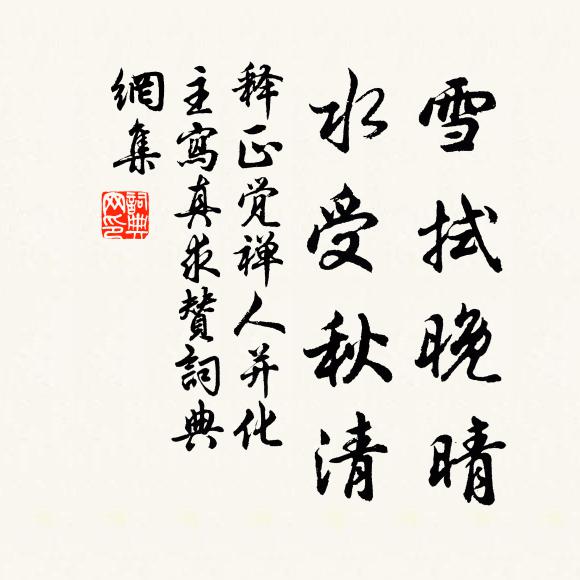 雪拭晚晴
水受秋清
释正觉禅人并化
主寫真求赞詞典
網集
詞典
网印